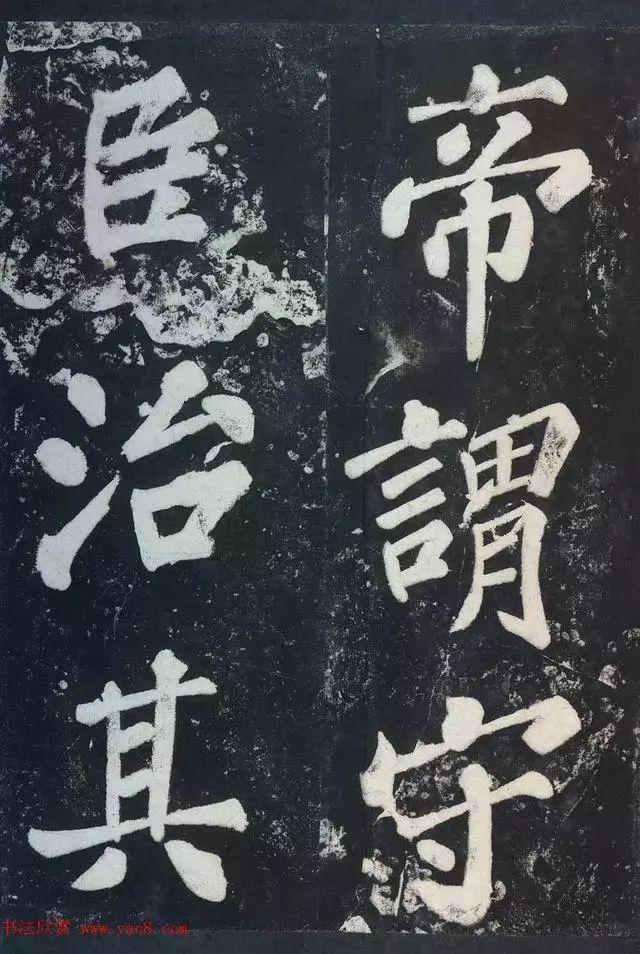 帝謂守
臣治其
书法欣赏 www.yac8.com